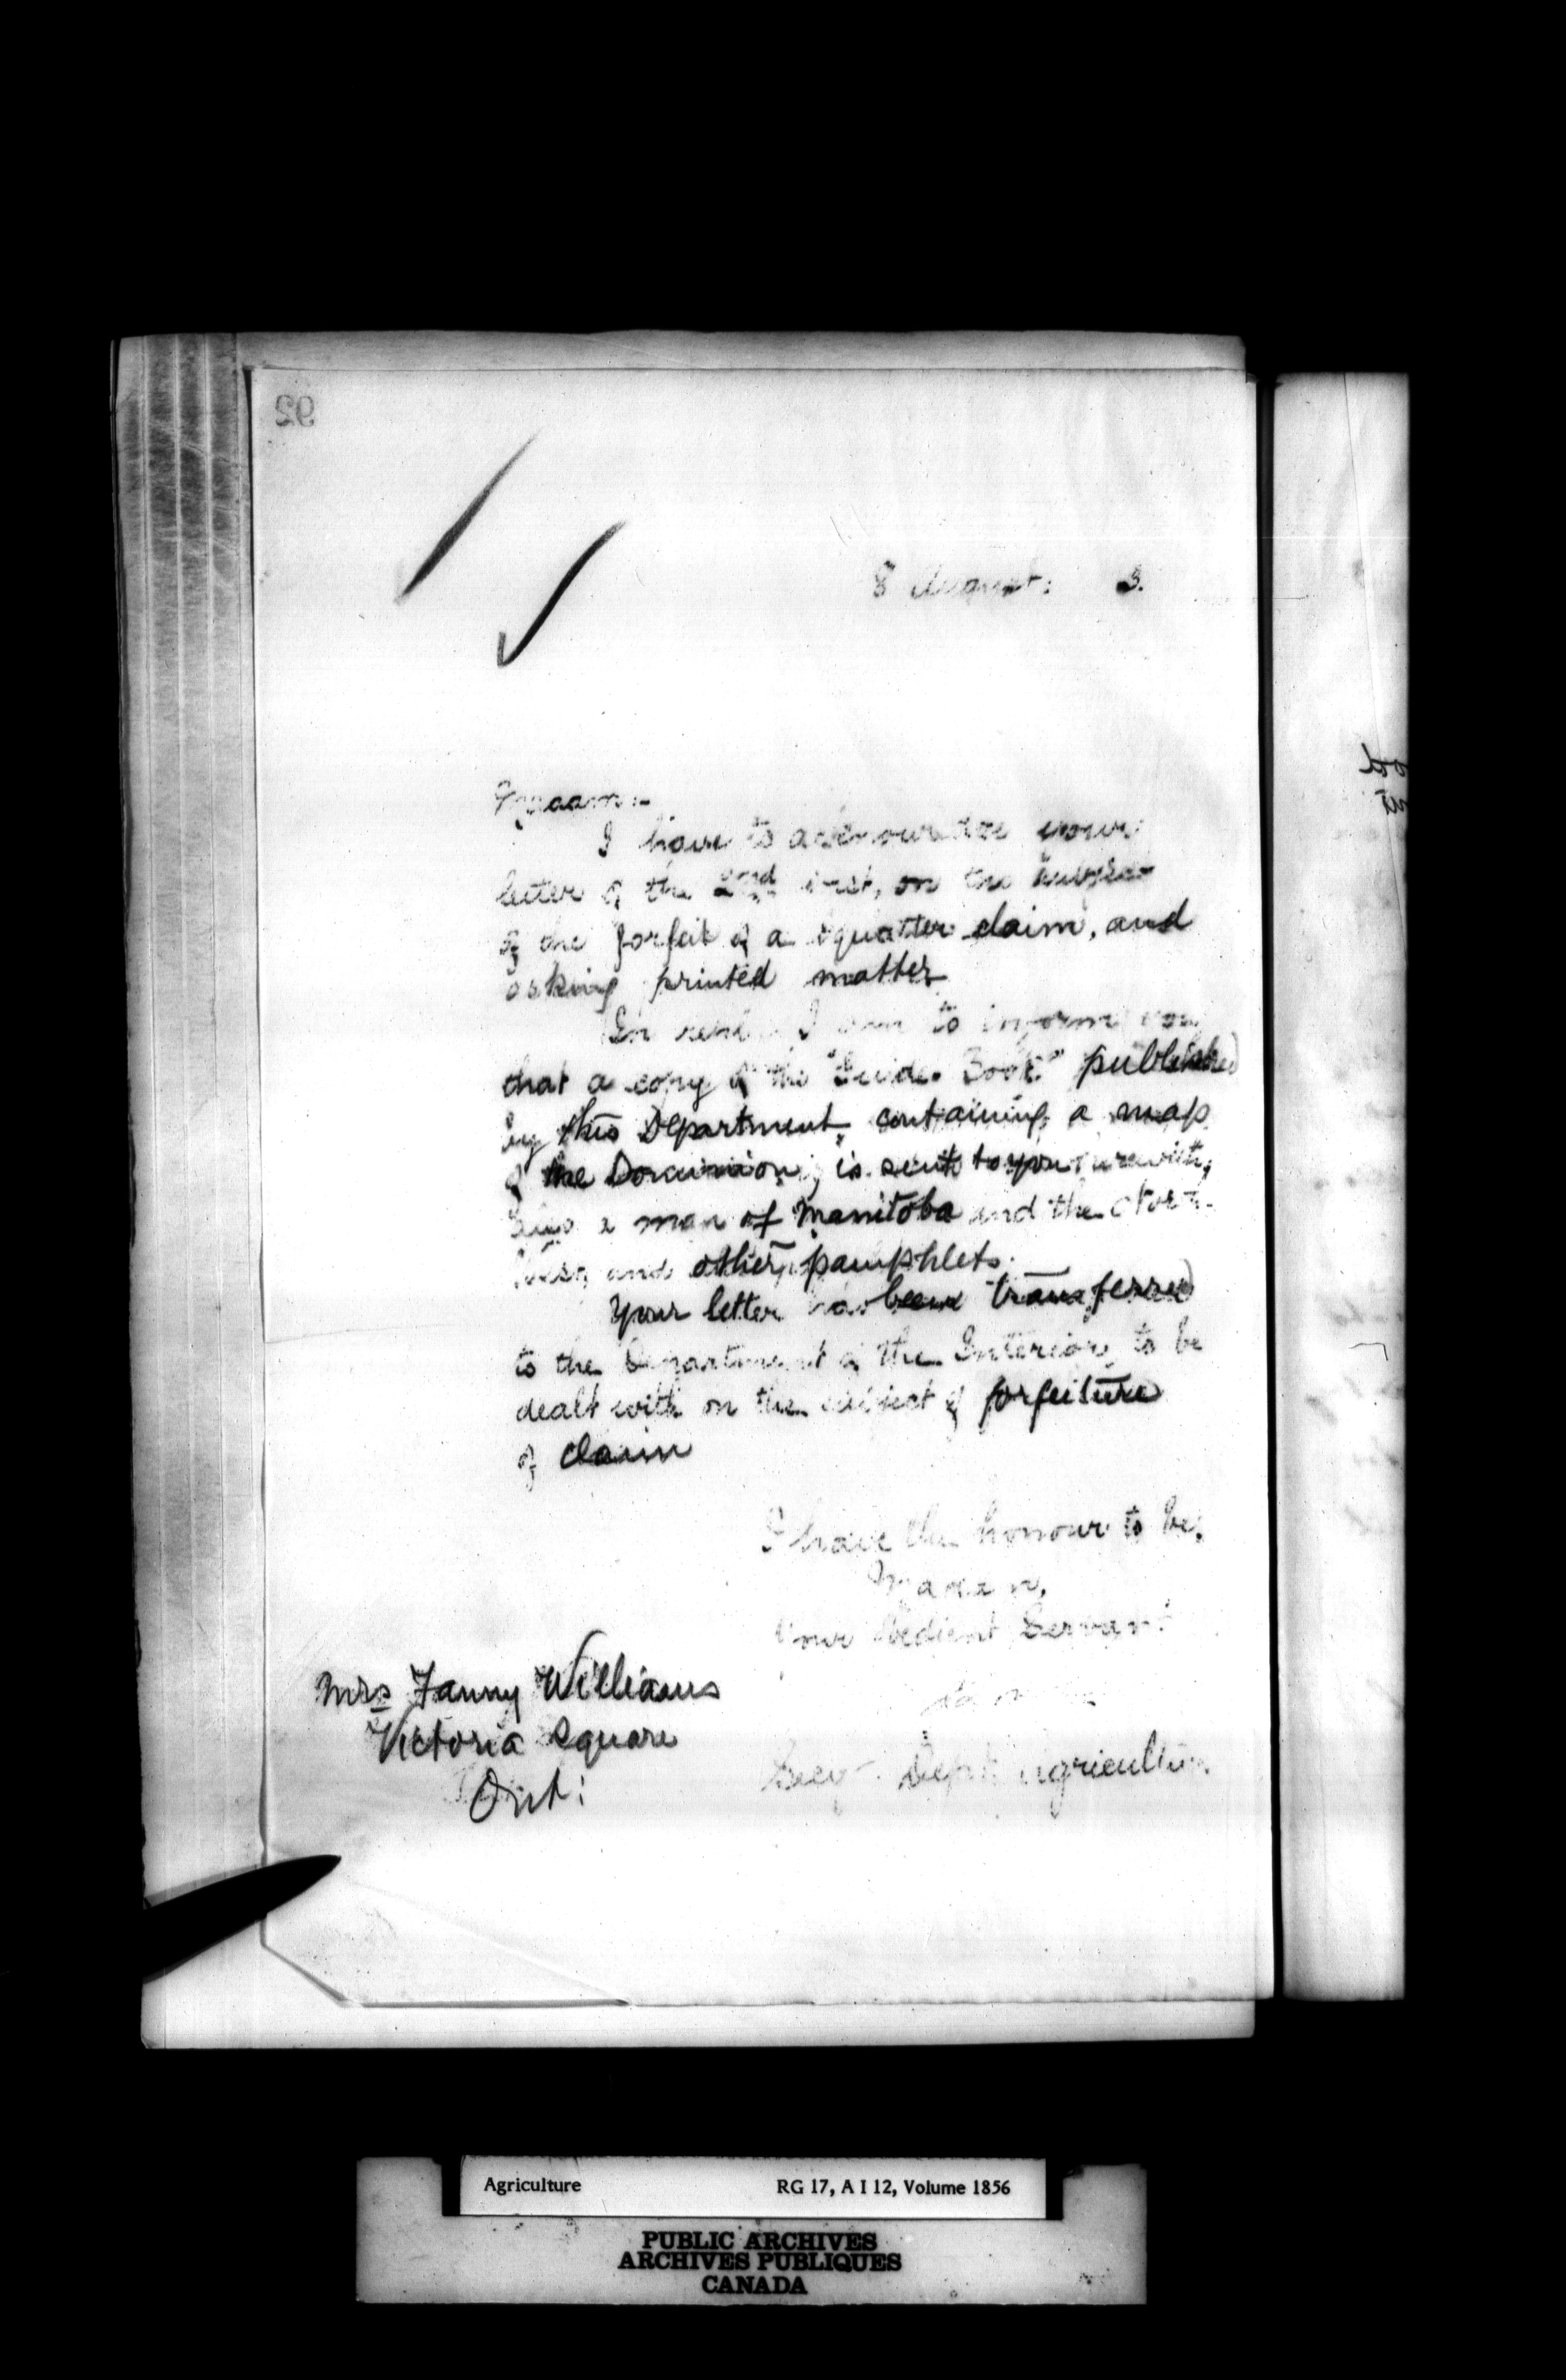 92
8 August: 3.
Madam:-
I have to acknowledge your
letter of the 2nd inst, on the subject
of the forfeit of a squatter claim, and
asking printed matter
In reply I am to inform you
that a copy of the "Guide Book" published
by this Department, containing a map
of the Dominion, is sent to you herewith,
Also a map of Manitoba and the North
West, and other pamphlets.
Your letter has been transferred
to the Department of the Interior, to be
dealt with on the subject of forfeiture
of claim
I have the honour to be,
Madam,
Your Obedient Servant
Mrs Fanny Williams
Victoria Square
Ont:
Secy. Dept. Agriculture
Agriculture RG 17, A I 12, Volume 1856
PUBLIC ARCHIVES
ARCHIVES PUBLIQUES
CANADA